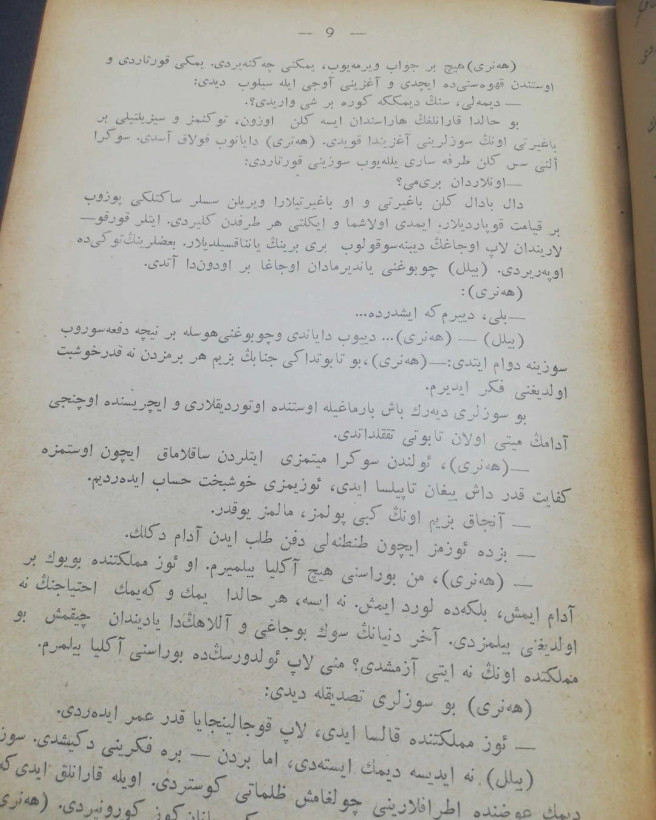 — 9 —
(هەنری) هیچ بر جواب ویرمەیوب، یمکنی چەکنەیردی. یمکی قورتاردی و
اوستندن قهوەستی‌دە ایچدی و آغزینی آوجی ایله سیلوب دیدی:
— دیمەلی، سنڭ دیمککه کورە بر شی واریدی؟.
بو حالدا قارانلغڭ هاراسندان ایسه کلن اوزون، توکنمز و سیزیلتیلی بر
باغیرتی اونڭ سوزلرینی آغزیندا قویدی. (هەنری) دایانوب قولاق آسدی. سوکرا
آلنی سس کلن طرفه ساری یللەیوب سوزینی قورتاردی:
— اونلاردان بری‌می؟
دال بادال کلن باغیرتی و او باغیرتیلارا ویریلن سسلر ساکتلکی پوزوب
بر قیامت قوپاردیلار. ایمدی اولاشما و ایکلتی هر طرفدن کلیردی. ایتلر قورقو—
لاریندان لاپ اوجاغڭ دیبینه‌سوقولوب بری برینڭ یانناقیسیلدیلار. بعضلرینڭ‌توکی‌دە
اوپەریردی. (بیلل) چوبوغنی یاندیرمادان اوجاغا بر اودون‌دا آتدی.
(هەنری):
— بلی، دییرم که ایشدرده...
(بیلل) — (هەنری)... دییوب دایاندی وچوبوغنی‌هوسله بر نیچه دفعه‌سوروب
سوزینه دوام ایتدی: — (هەنری)، بو تابوتداکی جنابڭ بزیم هر برمزدن نه قدرخوشبت
اولدیغنی فکر ایدیرم.
بو سوزلری دیەرك باش بارماغیله اوستنده اوتوردیقلاری و ایچریسنده اوچنجی
آدامڭ میتی اولان تابوتی تققلداتدی.
— (هەنری)، ئولندن سوکرا میتمزی ایتلردن ساقلاماق ایچون اوستمزه
کفایت قدر داش ییغان تاپیلسا ایدی، ئوزیمزی خوشبخت حساب ایدەردیم.
— آنجاق بزیم اونڭ کبی پولمز، مالمز یوقدر.
— بزده ئوزمز ایچون طنطنه‌لی دفن طلب ایدن آدام دکلك.
— (هەنری)، من بوراسنی هیچ آکلیا بیلمیرم. او ئوز مملکتنده بویوك بر
آدام ایمش، بلکه‌ده لورد ایمش. نه ایسه، هر حالدا یمك و کەیمك احتیاجنڭ نه
اولدیغنی بیلمزدی. آخر دنیانڭ سوك بوجاغی و آللاهڭ‌دا یادیندان چیقمش بو
مملکتده اونڭ نه ایتی آزمشدی؟ منی لاپ ئولدورسڭ‌ده بوراسنی آکلیا بیلمرم.
(هەنری) بو سوزلری تصدیقله دیدی:
— ئوز مملکتنده قالسا ایدی، لاپ قوجالینجایا قدر عمر ایدەردی.
(بیلل) نه ایدیسه دیمك ایستەدی، اما بردن — بره فکرینی دکیشدی. سوز
دیمك عوضنده اطرافلارینی چولغامش ظلماتی کوستردی. اویله قارانلق ایدی‌که
کوز کورونیردی. (هەنری